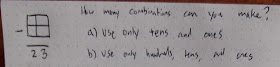 How many combinations can you make?
- 
a) Use only tens and ones
23
b) Use only hundreds, tens, and ones